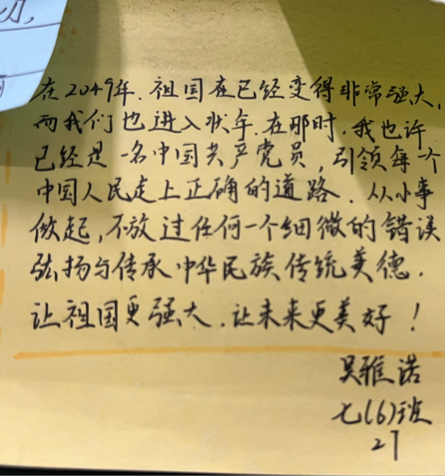 在2049年.祖国在已经变得非常强大,
而我们也进入状年.在那时.我也许
已经是一名中国共产党员,引领每一个
中国人民走上正确的道路.从小事
做起,不放过任何一个细微的错误
弘扬与传承中华民族传统美德.
让祖国更强大.让未来更美好!
吴雅诺
七(6)班
27